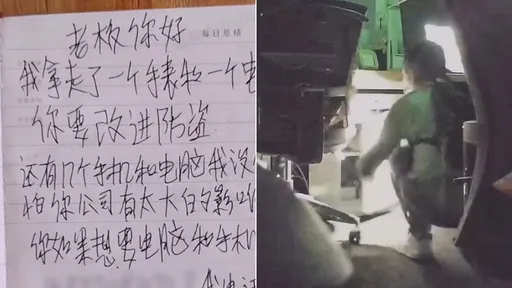 老板你好
每日总结
我拿走了一个手表和一个电
你要改进防盗
还有几个手机和电脑我没
怕你公司有太大的影响
你如果想要电脑和手机
我电话